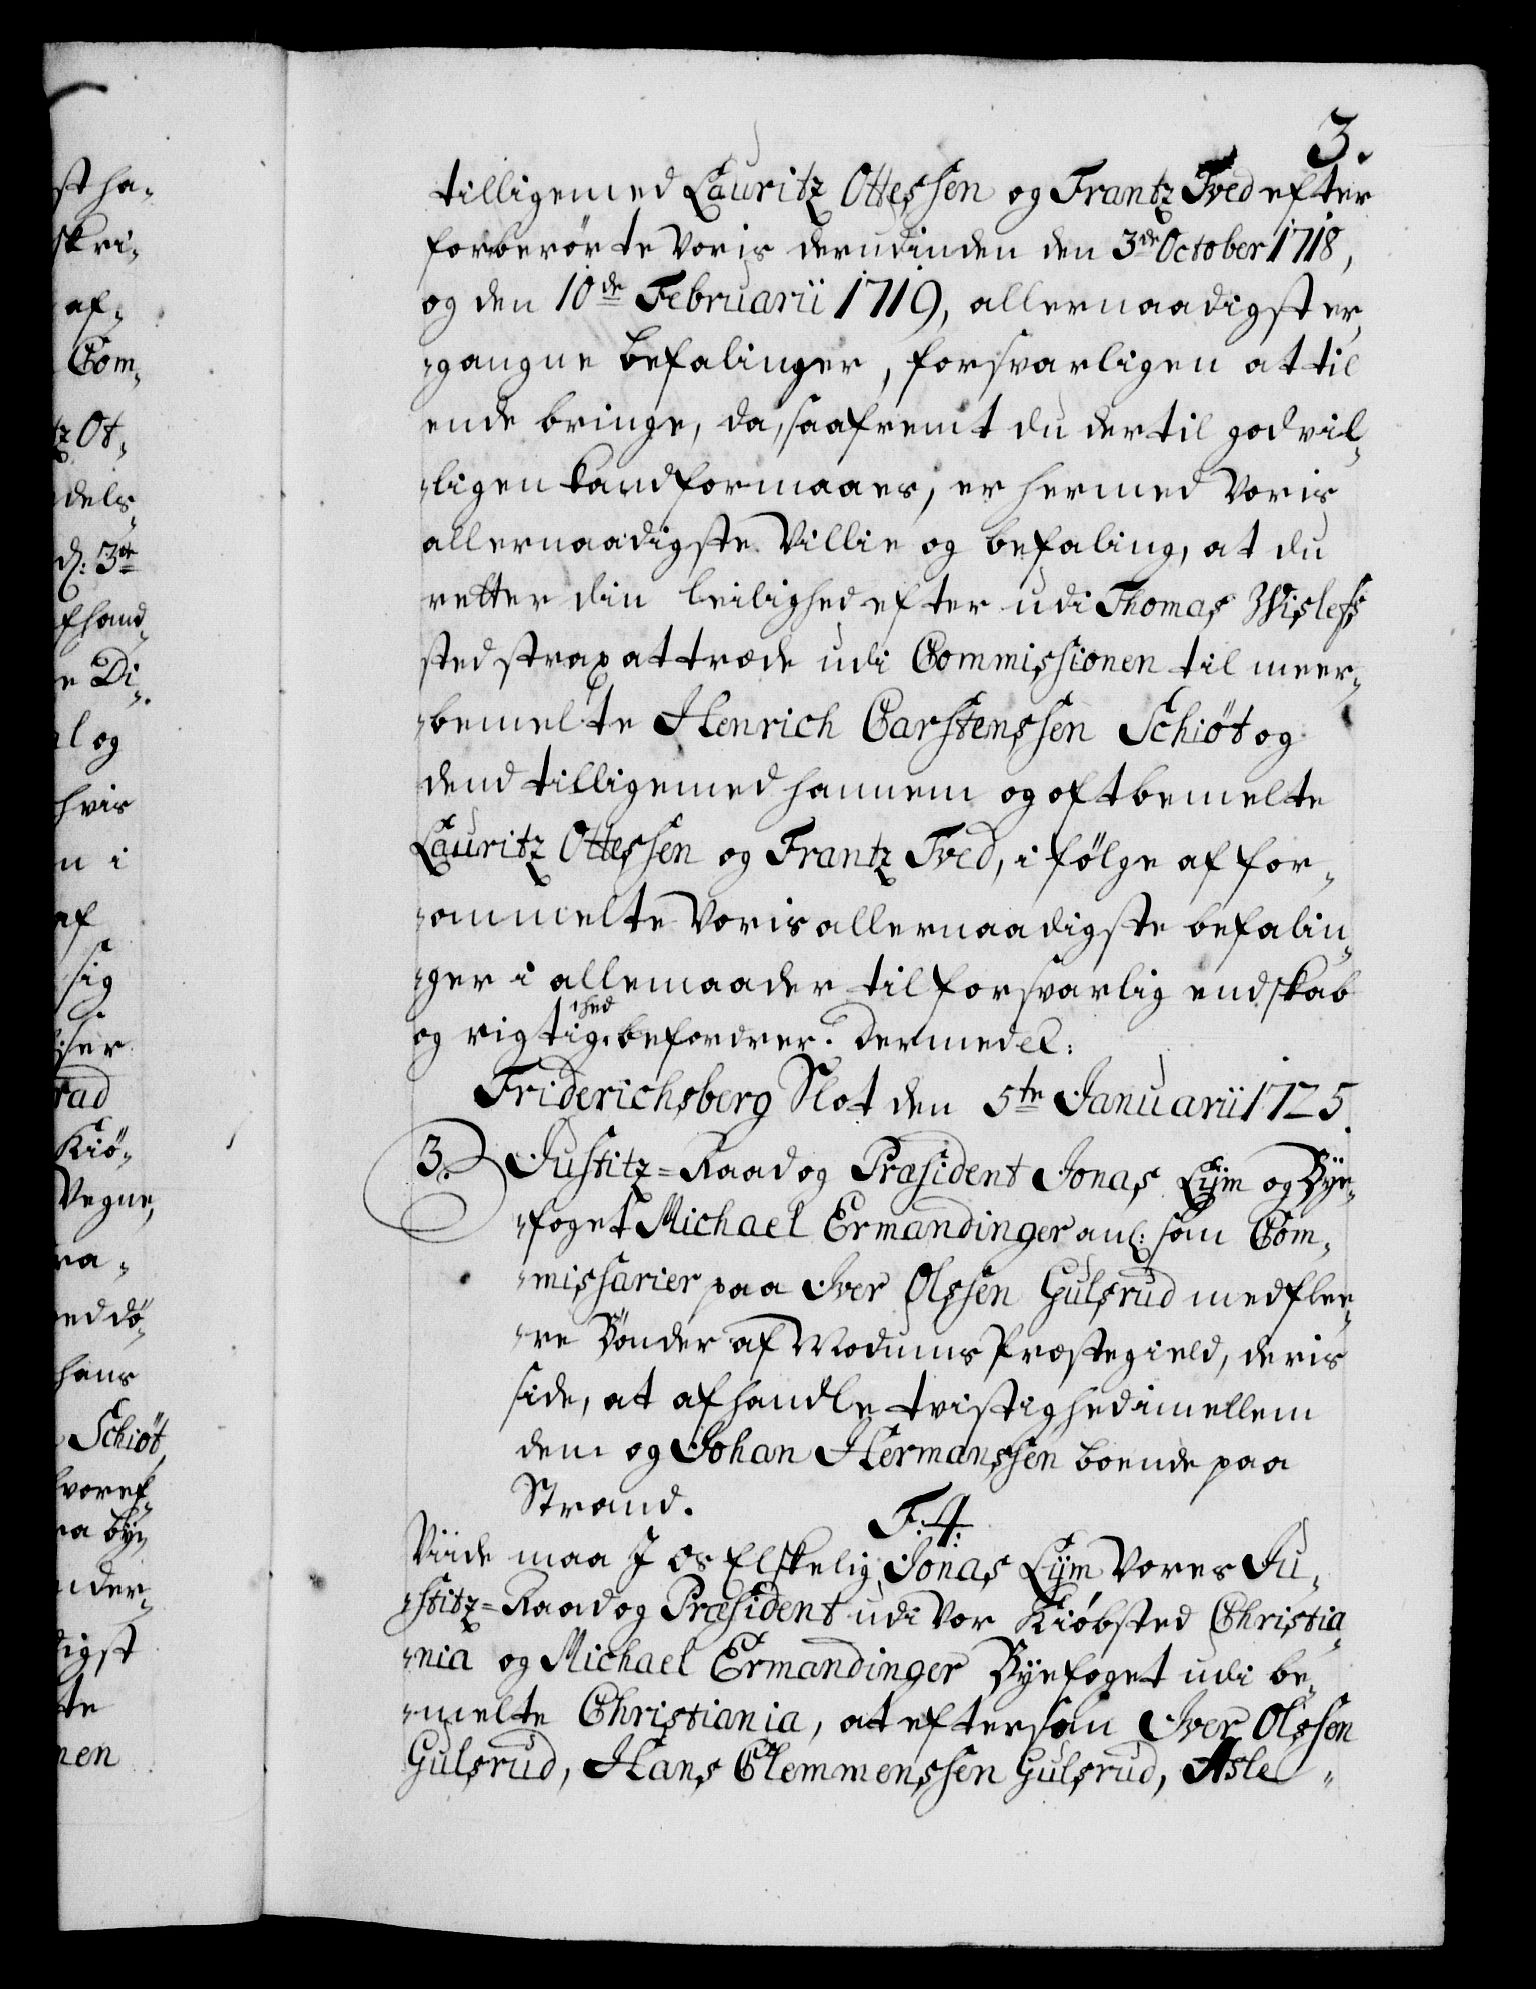 st ha-
skri-
af-
Com-
tz Ot-
dels-
d: 3de
fhand-
e Di-
l og
hvis
n i
af
sig
ser
rad
Kiö-
Vegne,
ra-
ed dö-
hans
Schiöt
hvoref-
ra bÿ-
nder-
digst
te
nen
3.
tilligemed Lauritz Ottessen og Frantz Tved efter
forberörte Voris derudinden den 3de October 1718,
og den 10de Februarii 1719, allernaadigst er-
-gangne befalinger, forsvarligen at til
ende bringe, da, saafremt du dertil godvil-
-ligen kand formaaes, er hermed Voris
allernaadigste Villie og befaling, at du
retter din leilighed efter udi Thomas Wislefs
sted strax at træde udi Commissionen til meer-
-bemelte Henrich Carstenssen Schiöt og
dend tilligemed hannem og oftbemelte
Lauritz Ottessen og Frantz Tved, i fölge af for-
-ommelte Voris allernaadigste befalin-
-ger i allemaader til forsvarlig endskab
og rigtighed befordrer. Dermed etc:
Friderichsberg Slot den 5te Januarii 1725.
3. Justitz-Raad og Præsident Jonas Lÿm og Bÿe-
-foget Michael Ermandinger anl: som Com-
-missarier paa Iver Olssen Gulsrud med flee-
-re Bönder af Modums Præstegield, deris
side, at afhandle tvistighed imellem
dem og Johan Hermanssen boende paa
Strand.
F. 4.
Viide maa I os Elskelig, Jonas Lÿm Vores Ju-
-stitz-Raad og Præsident udi Vor Kiöbsted Christia-
-nia og Michael Ermandinger Bÿefoget udi be-
-melte Christiania, at eftersom Iver Olssen
Gulsrud, Hans Clemmenssen Gulsrud, Asle-